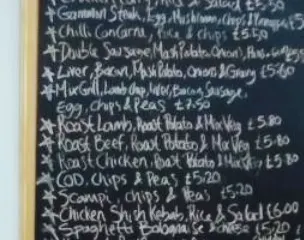 Chips & Salad £5.50
Gammon Steak, Egg, Mushroom, Chips & Pineapple
Chilli Concarna, Rice & chips £5.50
Double Sausage, Mash Potato, Onions, Peas &
Liver, Bacon, Mash Potato, Onions & Gravy £5.60
Mix Grill, Lamb chop, liver, Bacon, Sausage,
Egg, Chips & Peas £7.50
Roast Lamb, Roast Potato & Mix Veg £5.80
Roast Beef, Roast Potato & Mix Veg £5.80
Roast Chicken, Roast Potato & Mix Veg £5.80
COD, Chips & Peas £5.20
Scampi, Chips & Peas £5.20
Chicken Shish Kebab, Rice & Salad £6.00
Spaghetti Bolognaise & cheese £5.20